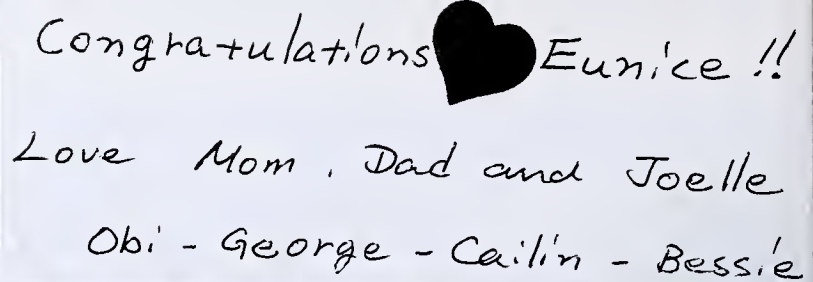 Congratulations Eunice !!
Love Mom, Dad and Joelle
Obi - George - Cailin - Bessie